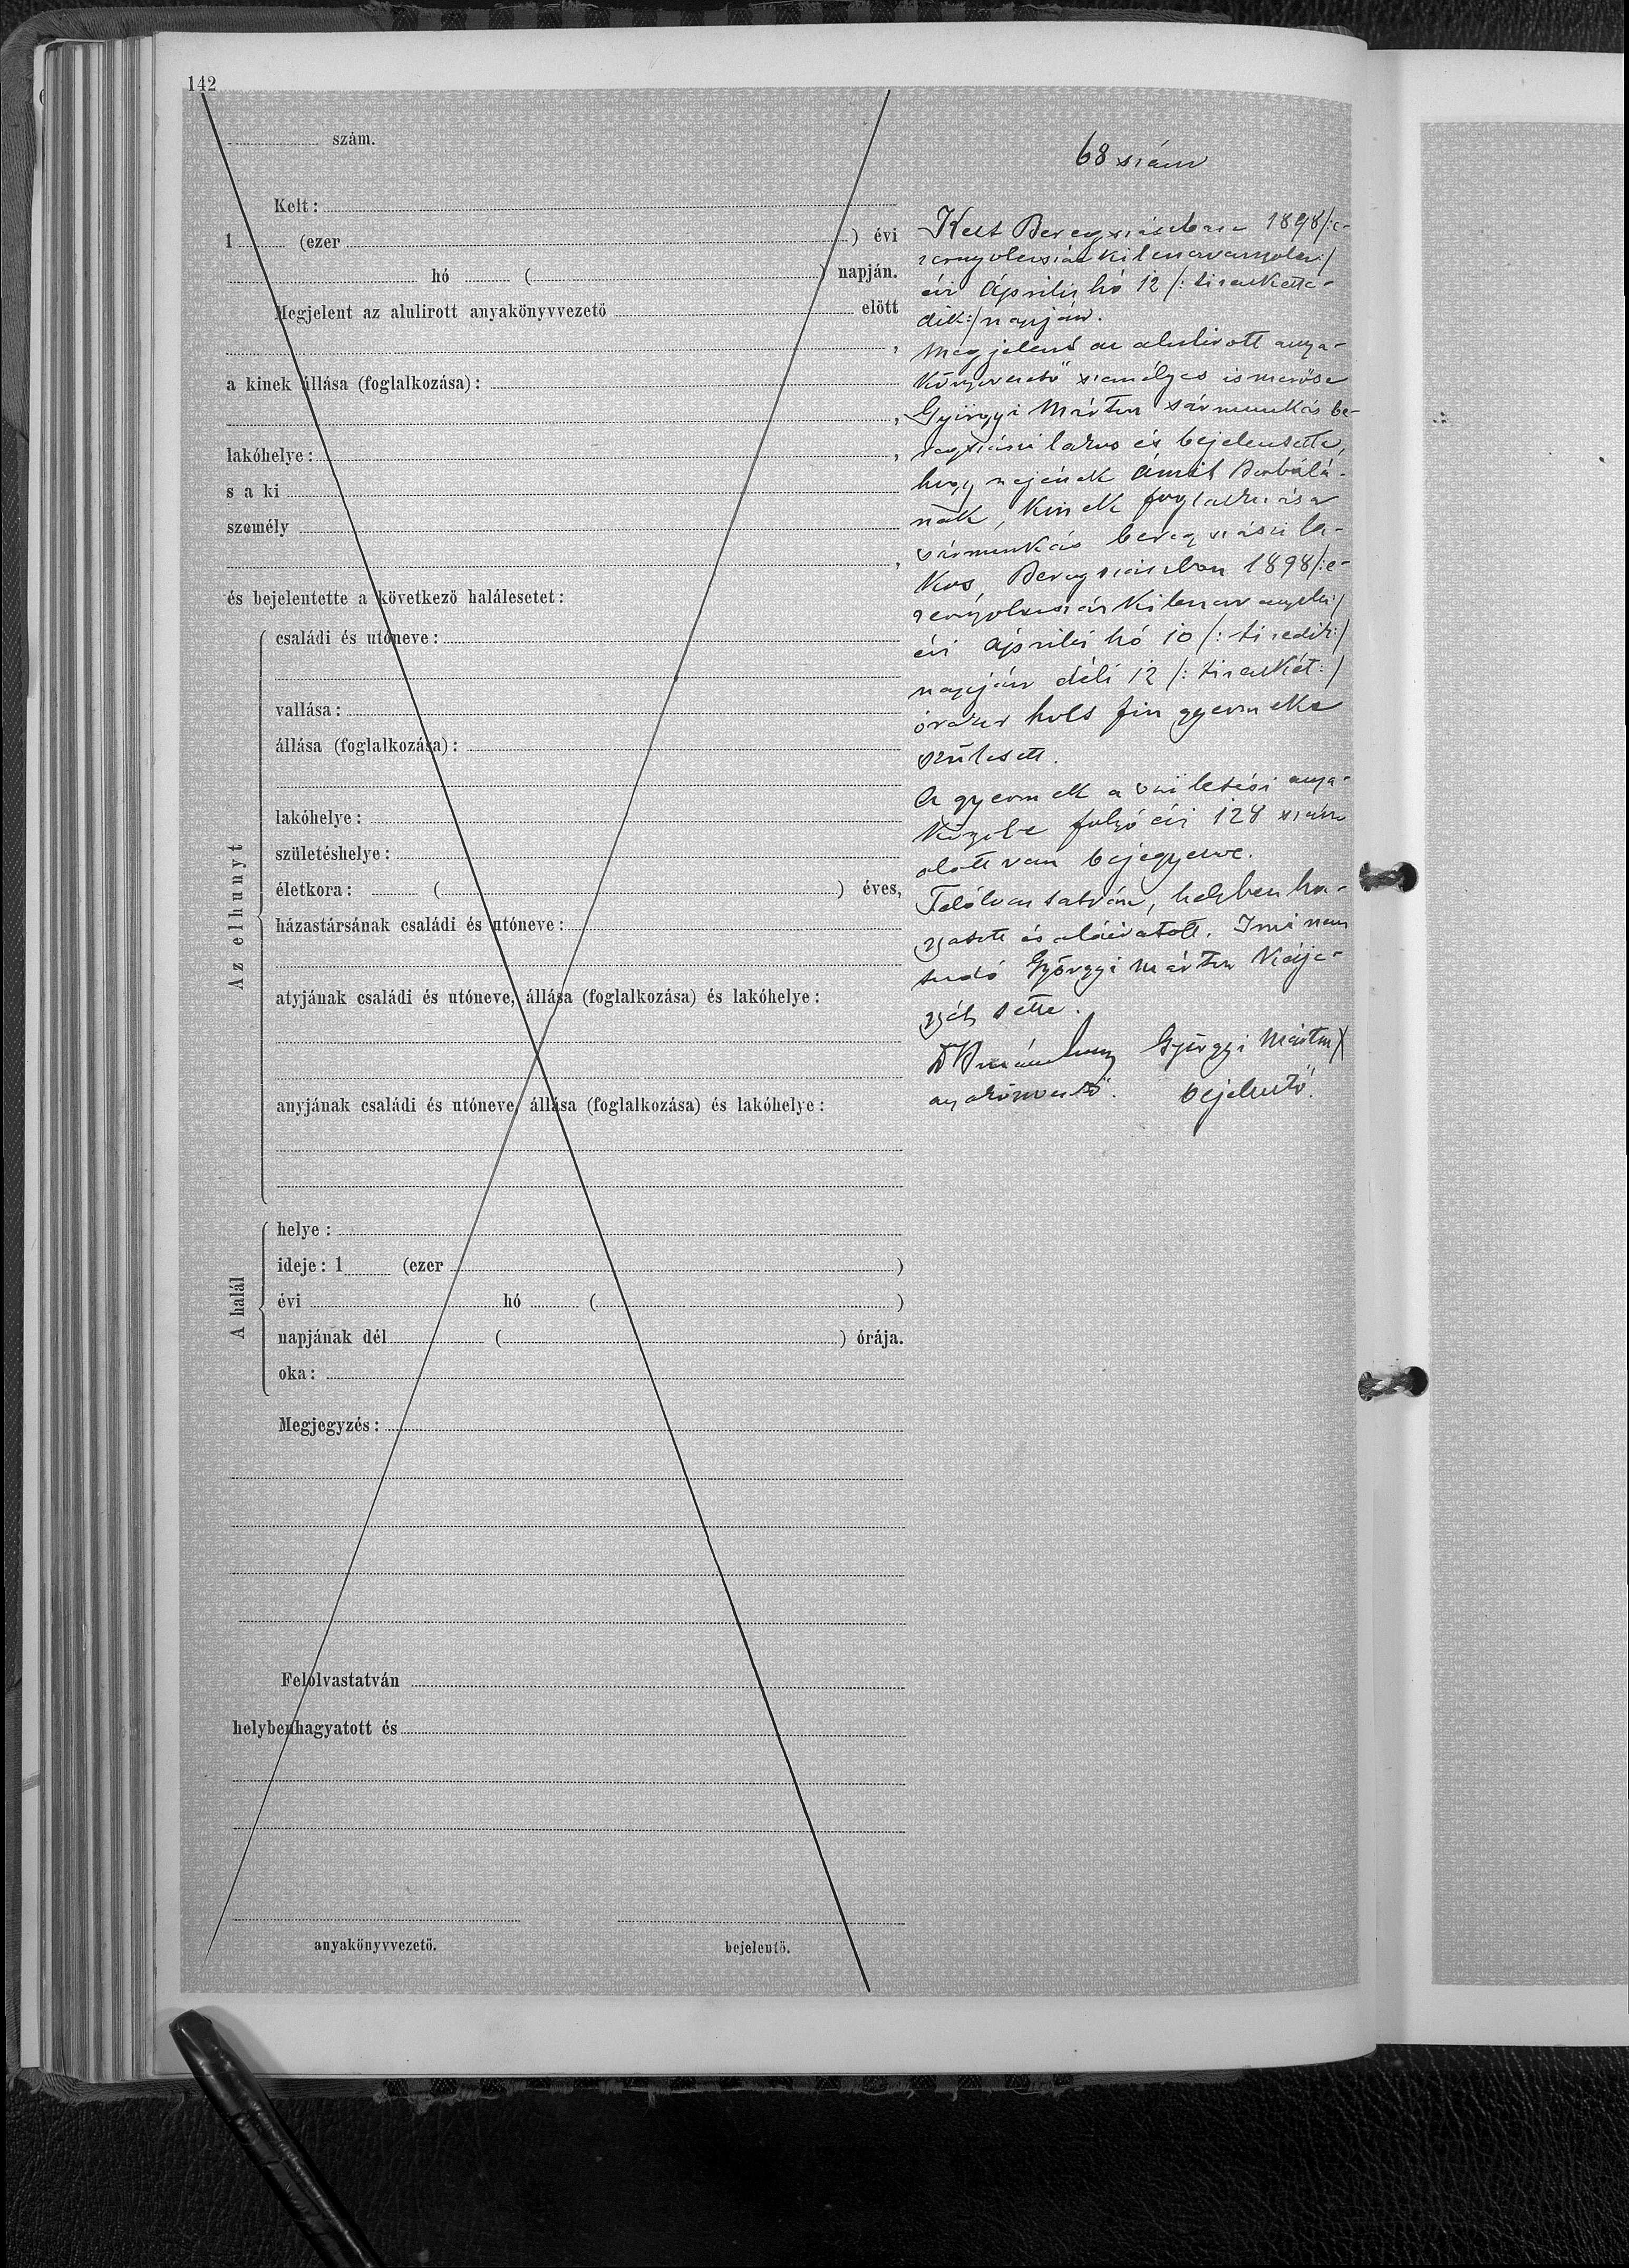 142
szám.
Kelt:
1 (ezer ) évi
hó ( ) napján.
Megjelent az alulirott anyakönyvvezető előtt
,
a kinek állása (foglalkozása):
,
lakóhelye: ,
s a ki
személy
,
és bejelentette a következő halálesetet:
Az elhunyt
családi és utóneve:
vallása:
állása (foglalkozása):
lakóhelye:
születéshelye:
életkora: ( ) éves,
házastársának családi és utóneve:
atyjának családi és utóneve, állása (foglalkozása) és lakóhelye:
anyjának családi és utóneve, állása (foglalkozása) és lakóhelye:
A halál
helye:
ideje: 1 (ezer )
évi hó ( )
napjának dél ( ) órája.
oka:
Megjegyzés:
Felolvastatván
helybenhagyatott és
anyakönyvvezető. bejelentő.
68 szám
Kelt Beregszászban 1898/:e-
zernyolczszázkilenczvennyolcz:/
évi Április hó 12 /: tizenkette-
dik:/ napján.
Megjelent az alulirott anya-
könyvvezető személyes ismerőse
Györgyi Márton sármunkás be-
regszászi lakos és bejelentette,
hogy nejének Ámit Borbálá-
nak, kinek foglalkozása
sármunkás beregszászi la-
kos, Beregszászban 1898/:e-
zernyolczszázkilenczvennyolcz:/
évi április hó 10 /: tizedik:/
napján déli 12 /: tizenkét:/
órakor holt fiu gyermeke
született.
A gyermek a születési anya-
könyvbe folyó évi 128 szám
alatt van bejegyezve.
Felolvastatván, helybenha-
gyatott és aláiratott. Irni nem
tudó Györgyi Márton kézje-
gyét tette.
Györgyi Márton X
anyakönyvvezető. bejelentő.